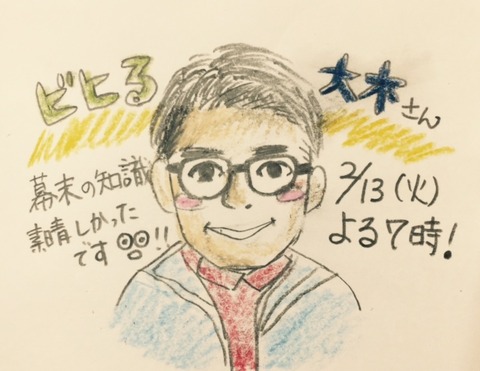 ビヒる
大木さん
幕末の知識
素晴しかった
です!!
2/13(火)
よる7時!